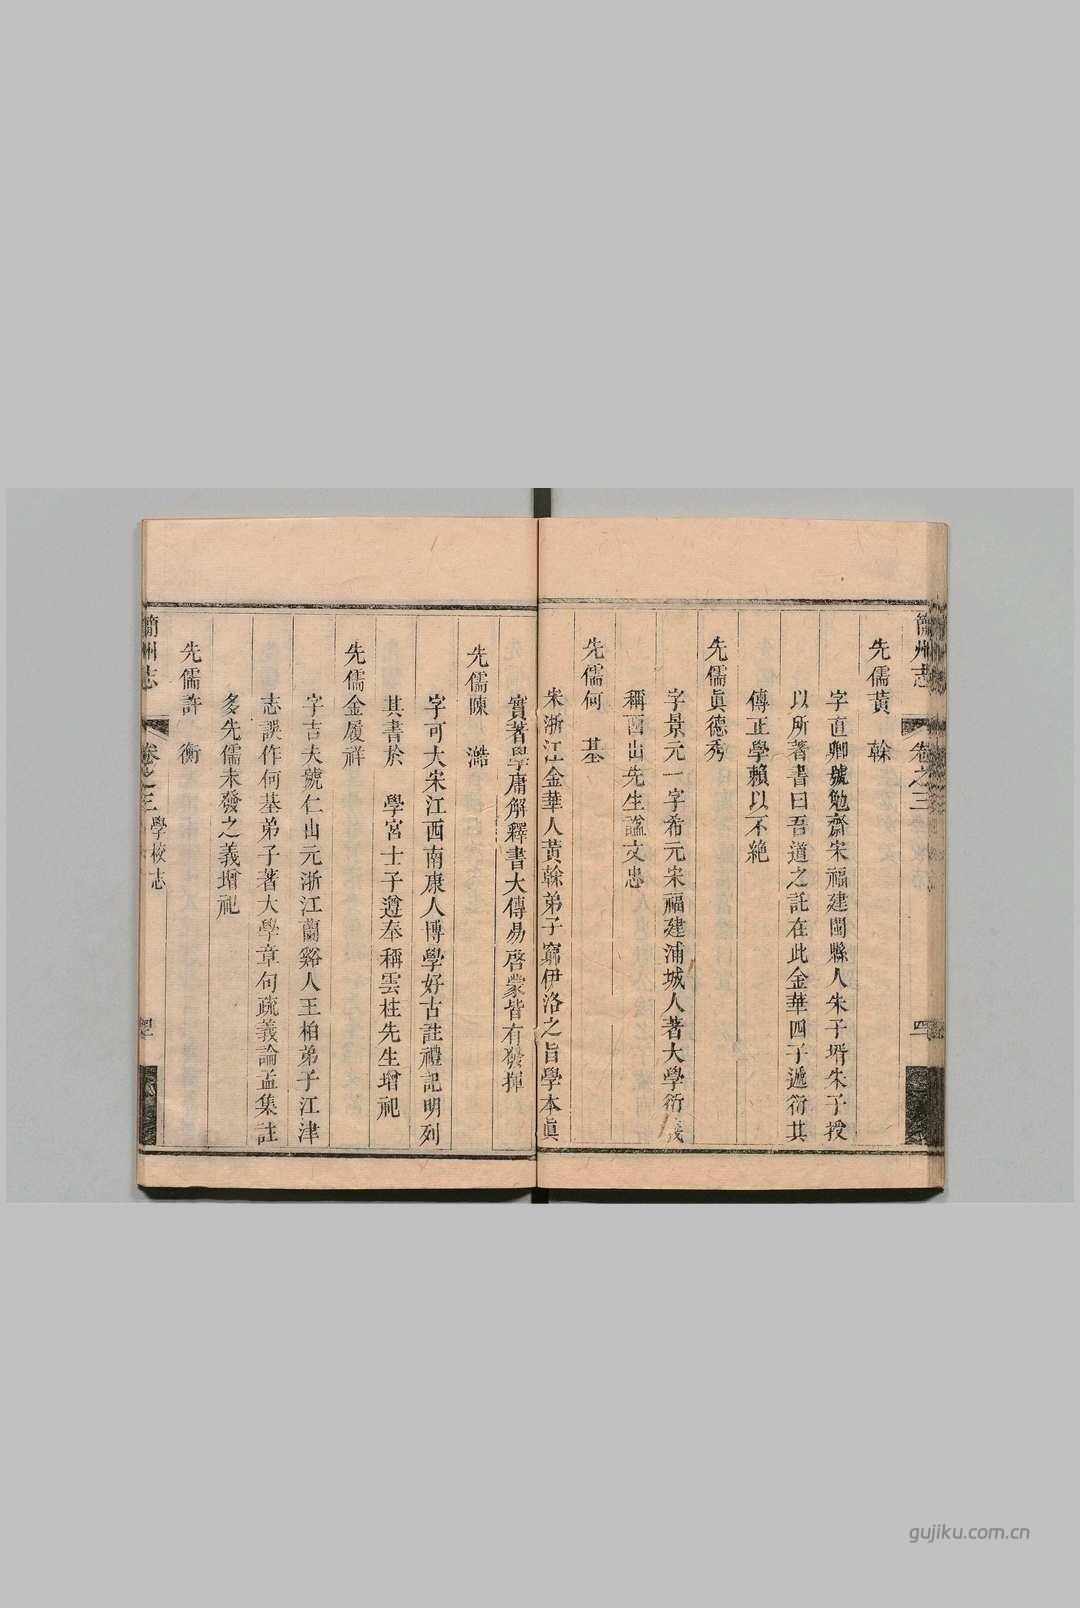 簡州志 卷之三 四
先儒黃 榦
字直卿號勉齋宋福建閩縣人朱子壻朱子授
以所著書曰吾道之託在此金華四子遞衍其
傳正學賴以不絶
先儒眞德秀
字景元一字希元宋福建浦城人著大學衍義
稱西山先生諡文忠
先儒何 基
宋浙江金華人黃榦弟子窮伊洛之旨學本眞
實著學庸解釋書大傳易啓蒙皆有發揮
先儒陳 澔
字可大宋江西南康人博學好古註禮記明列
其書於 學宮士子遵奉稱雲柱先生增祀
先儒金履祥
字吉夫號仁山元浙江蘭谿人王柏弟子江津
志誤作何基弟子著大學章句疏義論孟集註
多先儒未發之義增祀
先儒許 衡
簡州志 卷之三 學校志
gujiku.com.cn